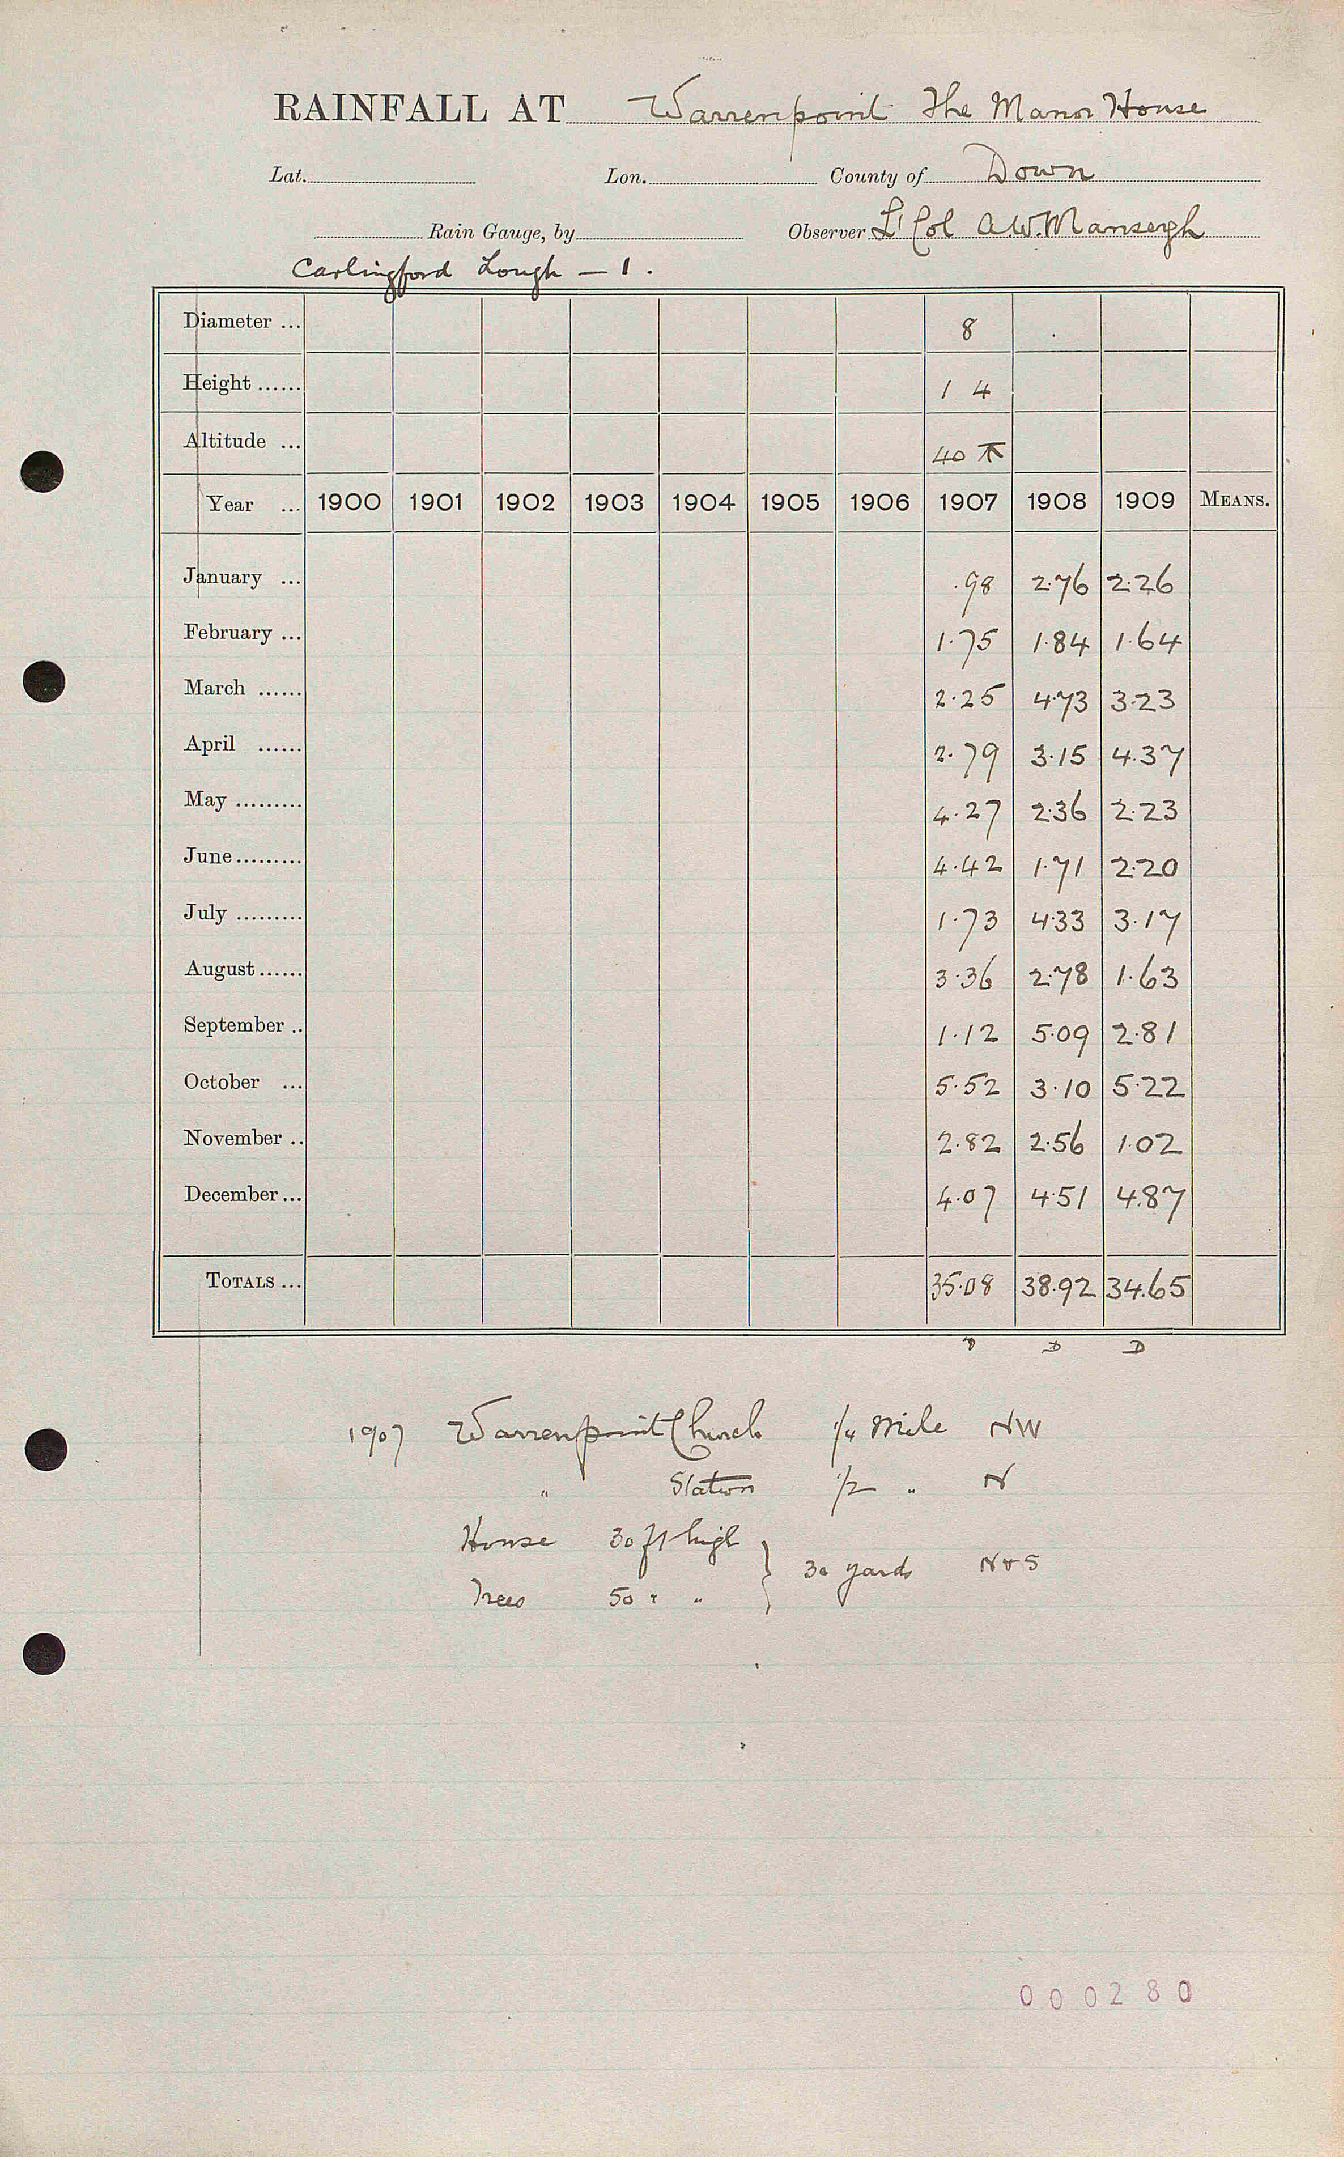 RAINFALL AT Warrenpoint The Manor House
Lat. Lon. County of Down
Rain Gauge, by Observer Lt Col A.W. Mansergh
Carlingford Lough — 1.
Diameter ... 8
Height ...... 1 4
Altitude ... 40
Year ... 1900 1901 1902 1903 1904 1905 1906 1907 1908 1909 MEANS.
January ... .98 2.76 2.26
February ... 1.75 1.84 1.64
March ...... 2.25 4.73 3.23
April ...... 2.79 3.15 4.37
May ......... 4.27 2.36 2.23
June ......... 4.42 1.71 2.20
July ......... 1.73 4.33 3.17
August ...... 3.36 2.78 1.63
September .. 1.12 5.09 2.81
October ... 5.52 3.10 5.22
November .. 2.82 2.56 1.02
December ... 4.07 4.51 4.87
TOTALS ... 35.08 38.92 34.65
D D D
1907 Warrenpoint Church 1/4 Mile NW
" Station 1/2 " N
House 30 ft high } 30 yards N & S
Trees 50 " "
000280